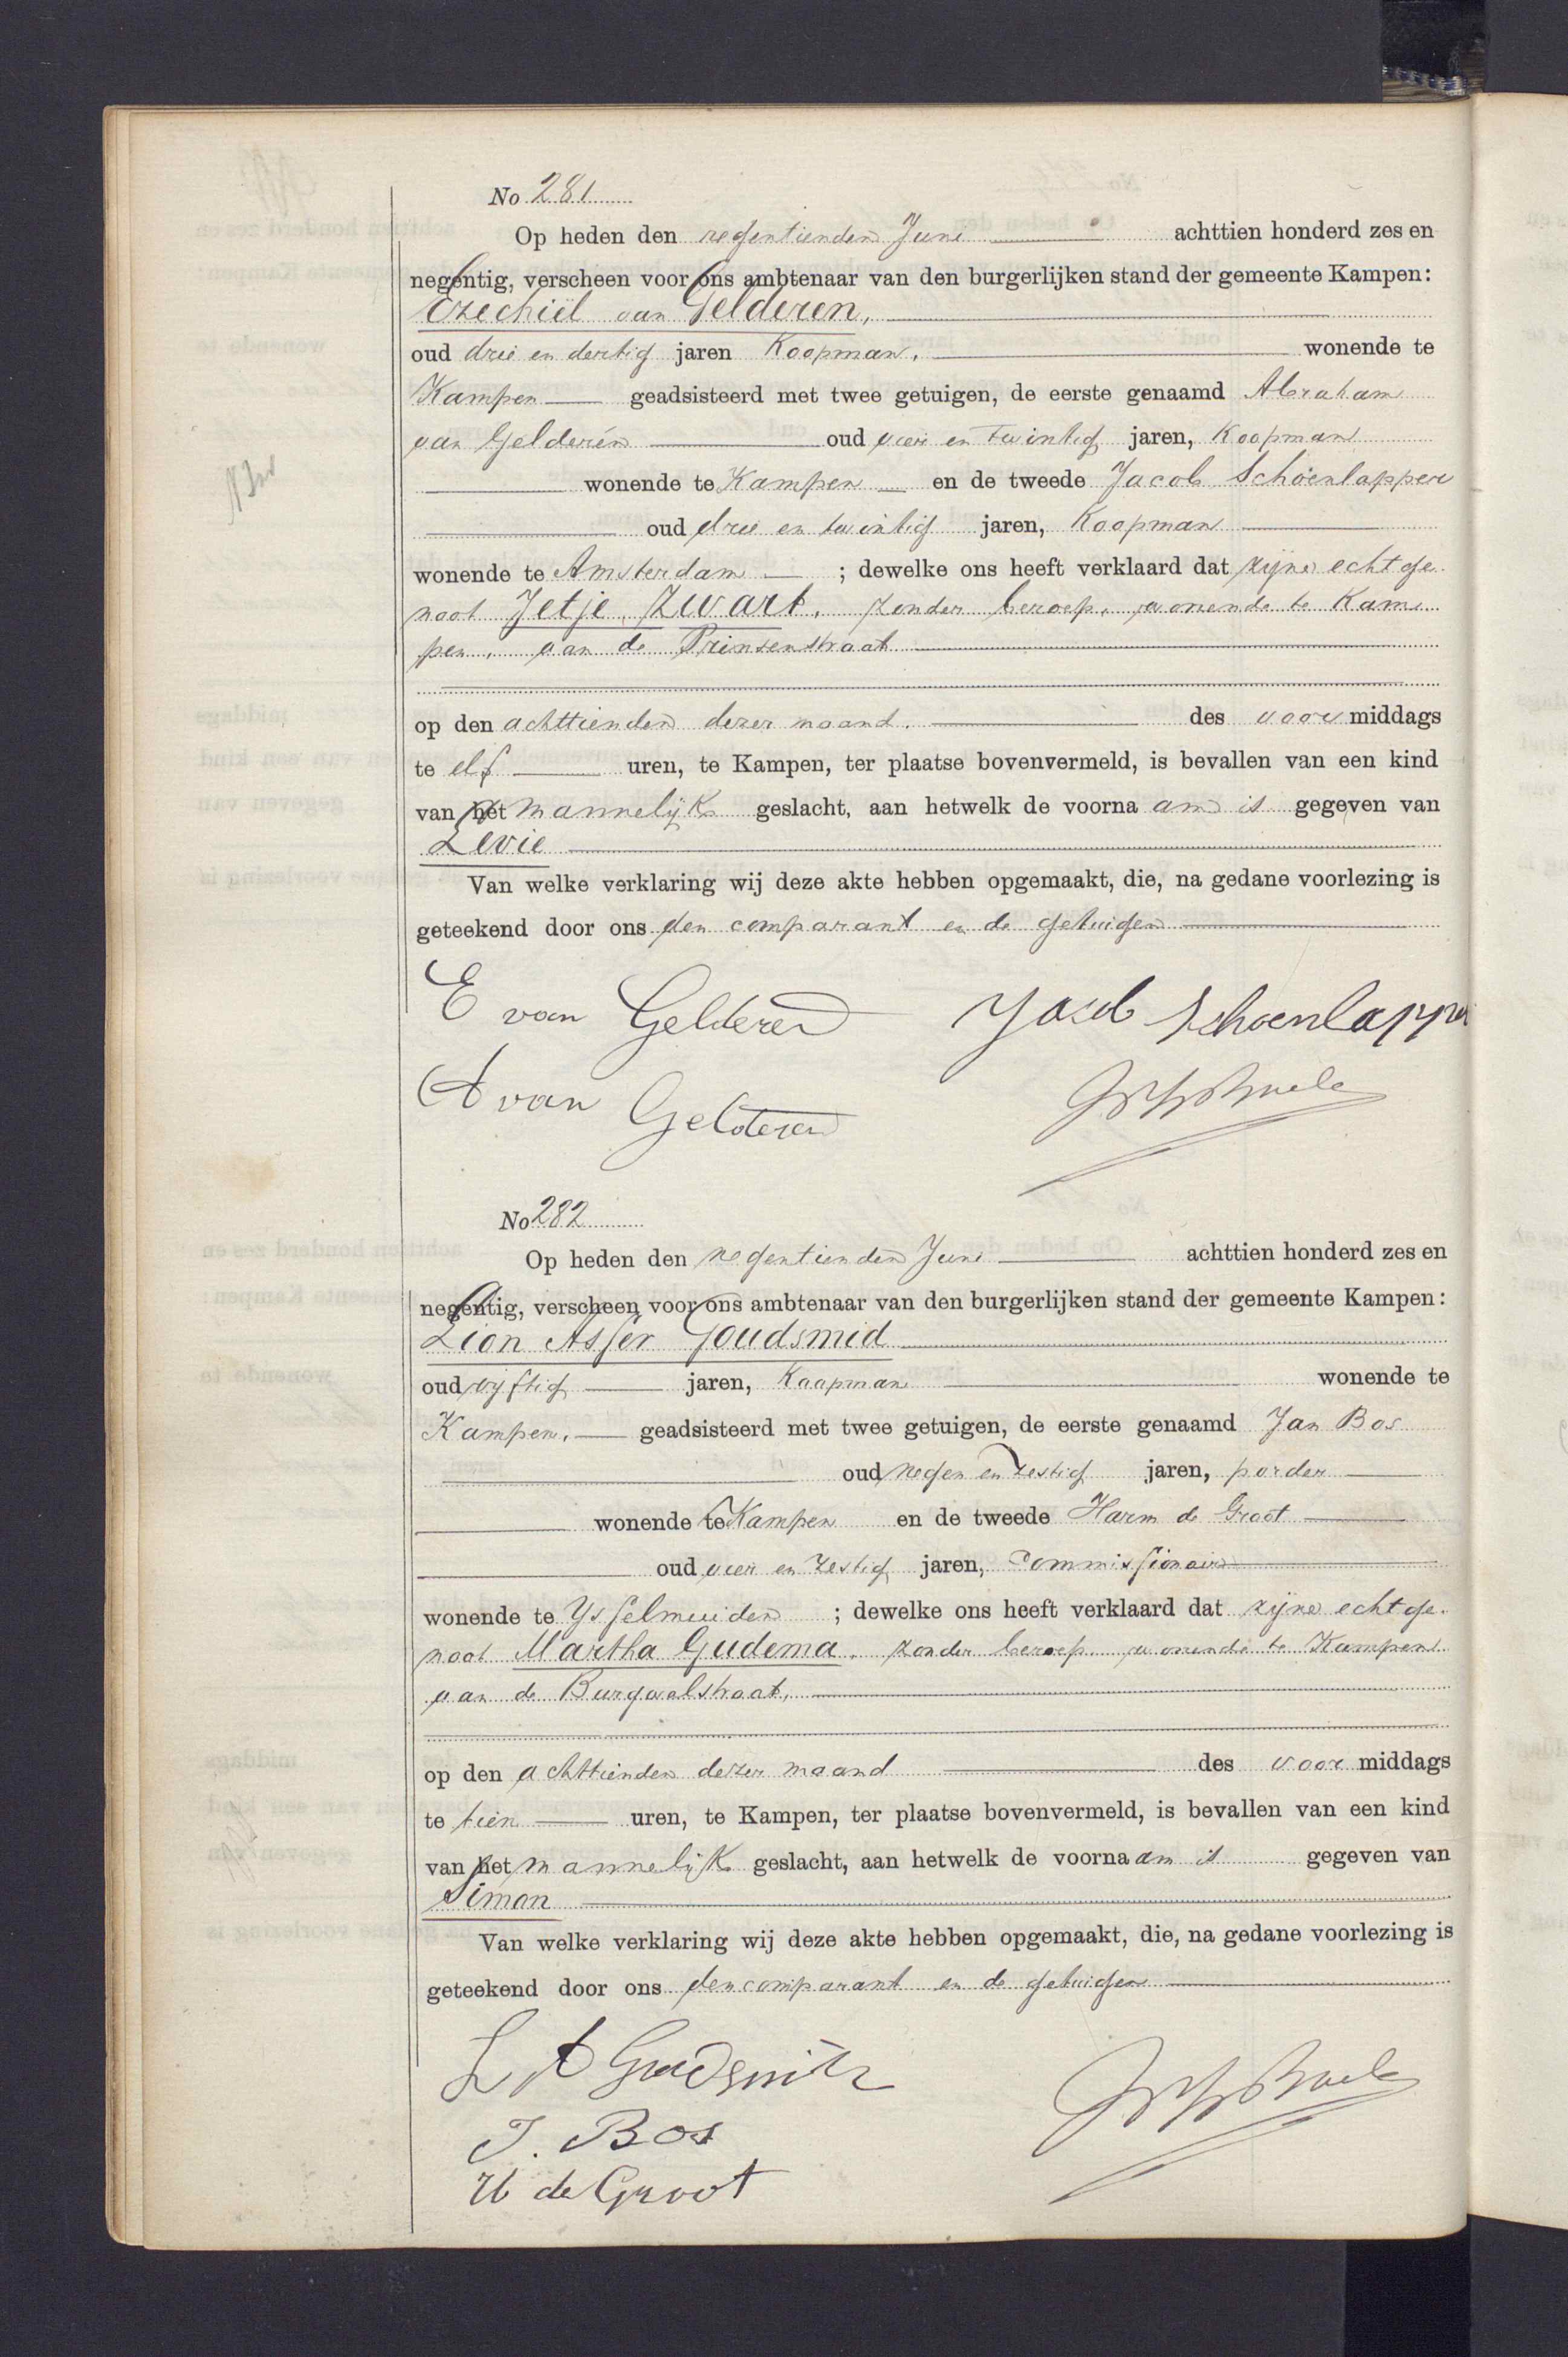 No 281
Op heden den negentienden Juni achttien honderd zes en
negentig, verscheen voor ons ambtenaar van den burgerlijken stand der gemeente Kampen:
Ezechiël van Gelderen,
oud drie en dertig jaren Koopman, wonende te
Kampen geadsisteerd met twee getuigen, de eerste genaamd Abraham
van Gelderen oud vier en twintig jaren, Koopman
wonende te Kampen en de tweede Jacob Schoenlapper
oud drie en twintig jaren, Koopman
wonende te Amsterdam ; dewelke ons heeft verklaard dat zijne echtge-
noot Jetje Zwart, zonder beroep, wonende te Kam-
pen, aan de Prinsenstraat
op den achttienden dezer maand, des voor middags
te elf uren, te Kampen, ter plaatse bovenvermeld, is bevallen van een kind
van het mannelijk geslacht, aan hetwelk de voorna am is gegeven van
Levie
Van welke verklaring wij deze akte hebben opgemaakt, die, na gedane voorlezing is
geteekend door ons den comparant en de getuigen
E van Gelderen Jacob Schoenlapper
A van Gelderen
No 282
Op heden den negentienden Juni achttien honderd zes en
negentig, verscheen voor ons ambtenaar van den burgerlijken stand der gemeente Kampen:
Lion Asser Goudsmid
oud vijftig jaren, Koopman wonende te
Kampen, geadsisteerd met twee getuigen, de eerste genaamd Jan Bos
oud negen en zestig jaren, porder
wonende te Kampen en de tweede Harm de Groot
oud vier en zestig jaren, Commissionair
wonende te Ysselmuiden ; dewelke ons heeft verklaard dat zijne echtge-
noot Martha Gudema, zonder beroep, wonende te Kampen
aan de Burgwalstraat,
op den achttienden dezer maand des voor middags
te tien uren, te Kampen, ter plaatse bovenvermeld, is bevallen van een kind
van het mannelijk geslacht, aan hetwelk de voorna am is gegeven van
Simon
Van welke verklaring wij deze akte hebben opgemaakt, die, na gedane voorlezing is
geteekend door ons den comparant en de getuigen
L A Goudsmith
J. Bos
H de Groot